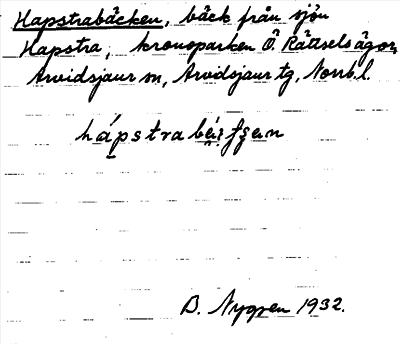 Hapstrabäcken, bäck från sjön
Hapstra, kronoparken Ö. Rättselsågor,
Arvidsjaur sn, Arvidsjaur tg, Norrb.l.
B. Nygren 1932.